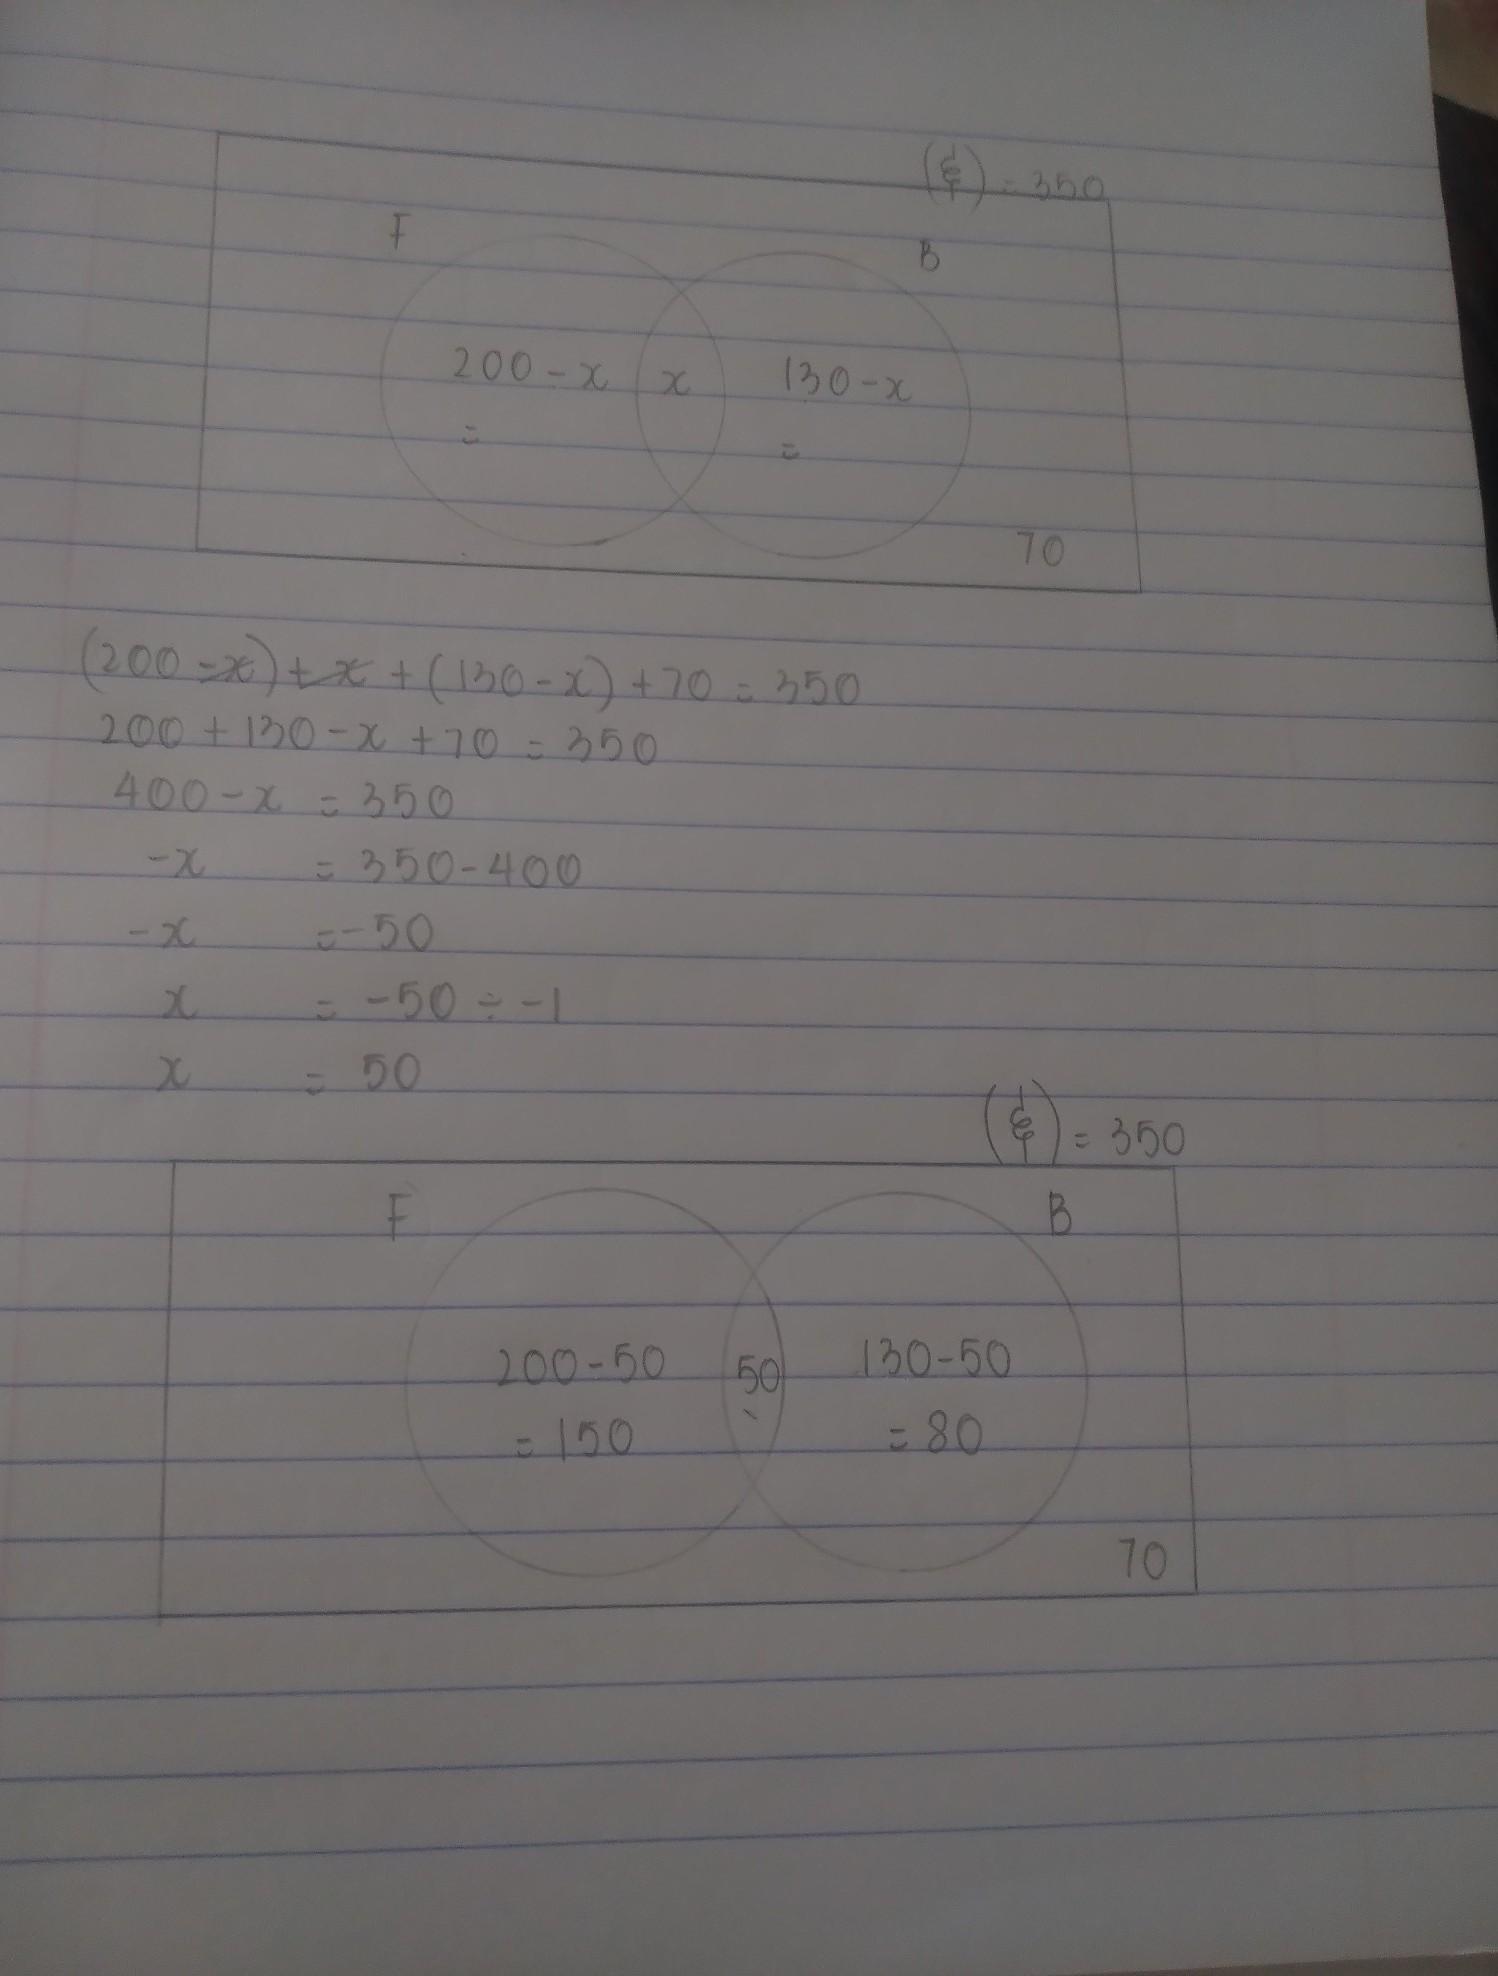 (ξ) = 350
F
B
200 - x x 130 - x
= =
70
(200 - x) + x + (130 - x) + 70 = 350
200 + 130 - x + 70 = 350
400 - x = 350
-x = 350 - 400
-x = -50
x = -50 ÷ -1
x = 50
(ξ) = 350
F B
200 - 50 50 130 - 50
= 150 = 80
70